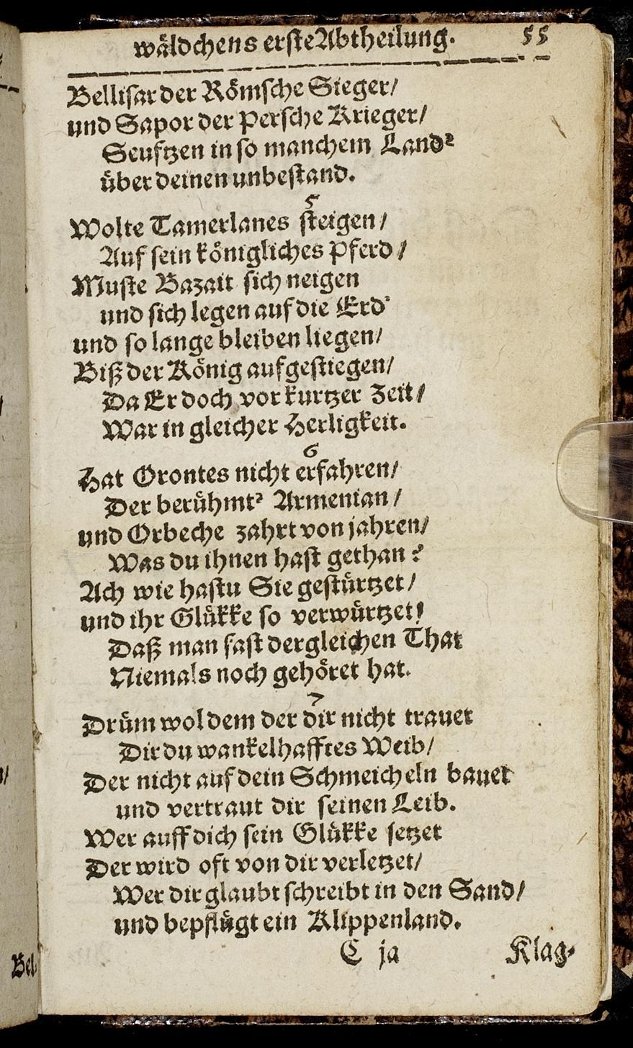 wäldchens erste Abtheilung. 55
Bellisar der Römsche Sieger/
und Sapor der Persche Krieger/
Seuftzen in so manchem Land'
über deinen unbestand.
5
Wolte Tamerlanes steigen/
Auf sein königliches Pferd/
Muste Bazait sich neigen
und sich legen auf die Erd'
und so lange bleiben liegen/
Biß der König aufgestiegen/
Da Er doch vor kurtzer Zeit/
War in gleicher Herligkeit.
6
Hat Orontes nicht erfahren/
Der berühmt' Armenian/
und Orbeche zahrt von jahren/
Was du ihnen hast gethan?
Ach wie hastu Sie gestürtzet/
und ihr Glükke so verwürtzet!
Daß man fast dergleichen That
Niemals noch gehöret hat.
7
Drüm wol dem der dir nicht trauet
Dir du wankelhafftes Weib/
Der nicht auf dein Schmeicheln bauet
und vertraut dir seinen Leib.
Wer auff dich sein Glükke setzet
Der wird oft von dir verletzet/
Wer dir glaubt schreibt in den Sand/
und bepflügt ein Klippenland.
C ja Klag-
Bel-